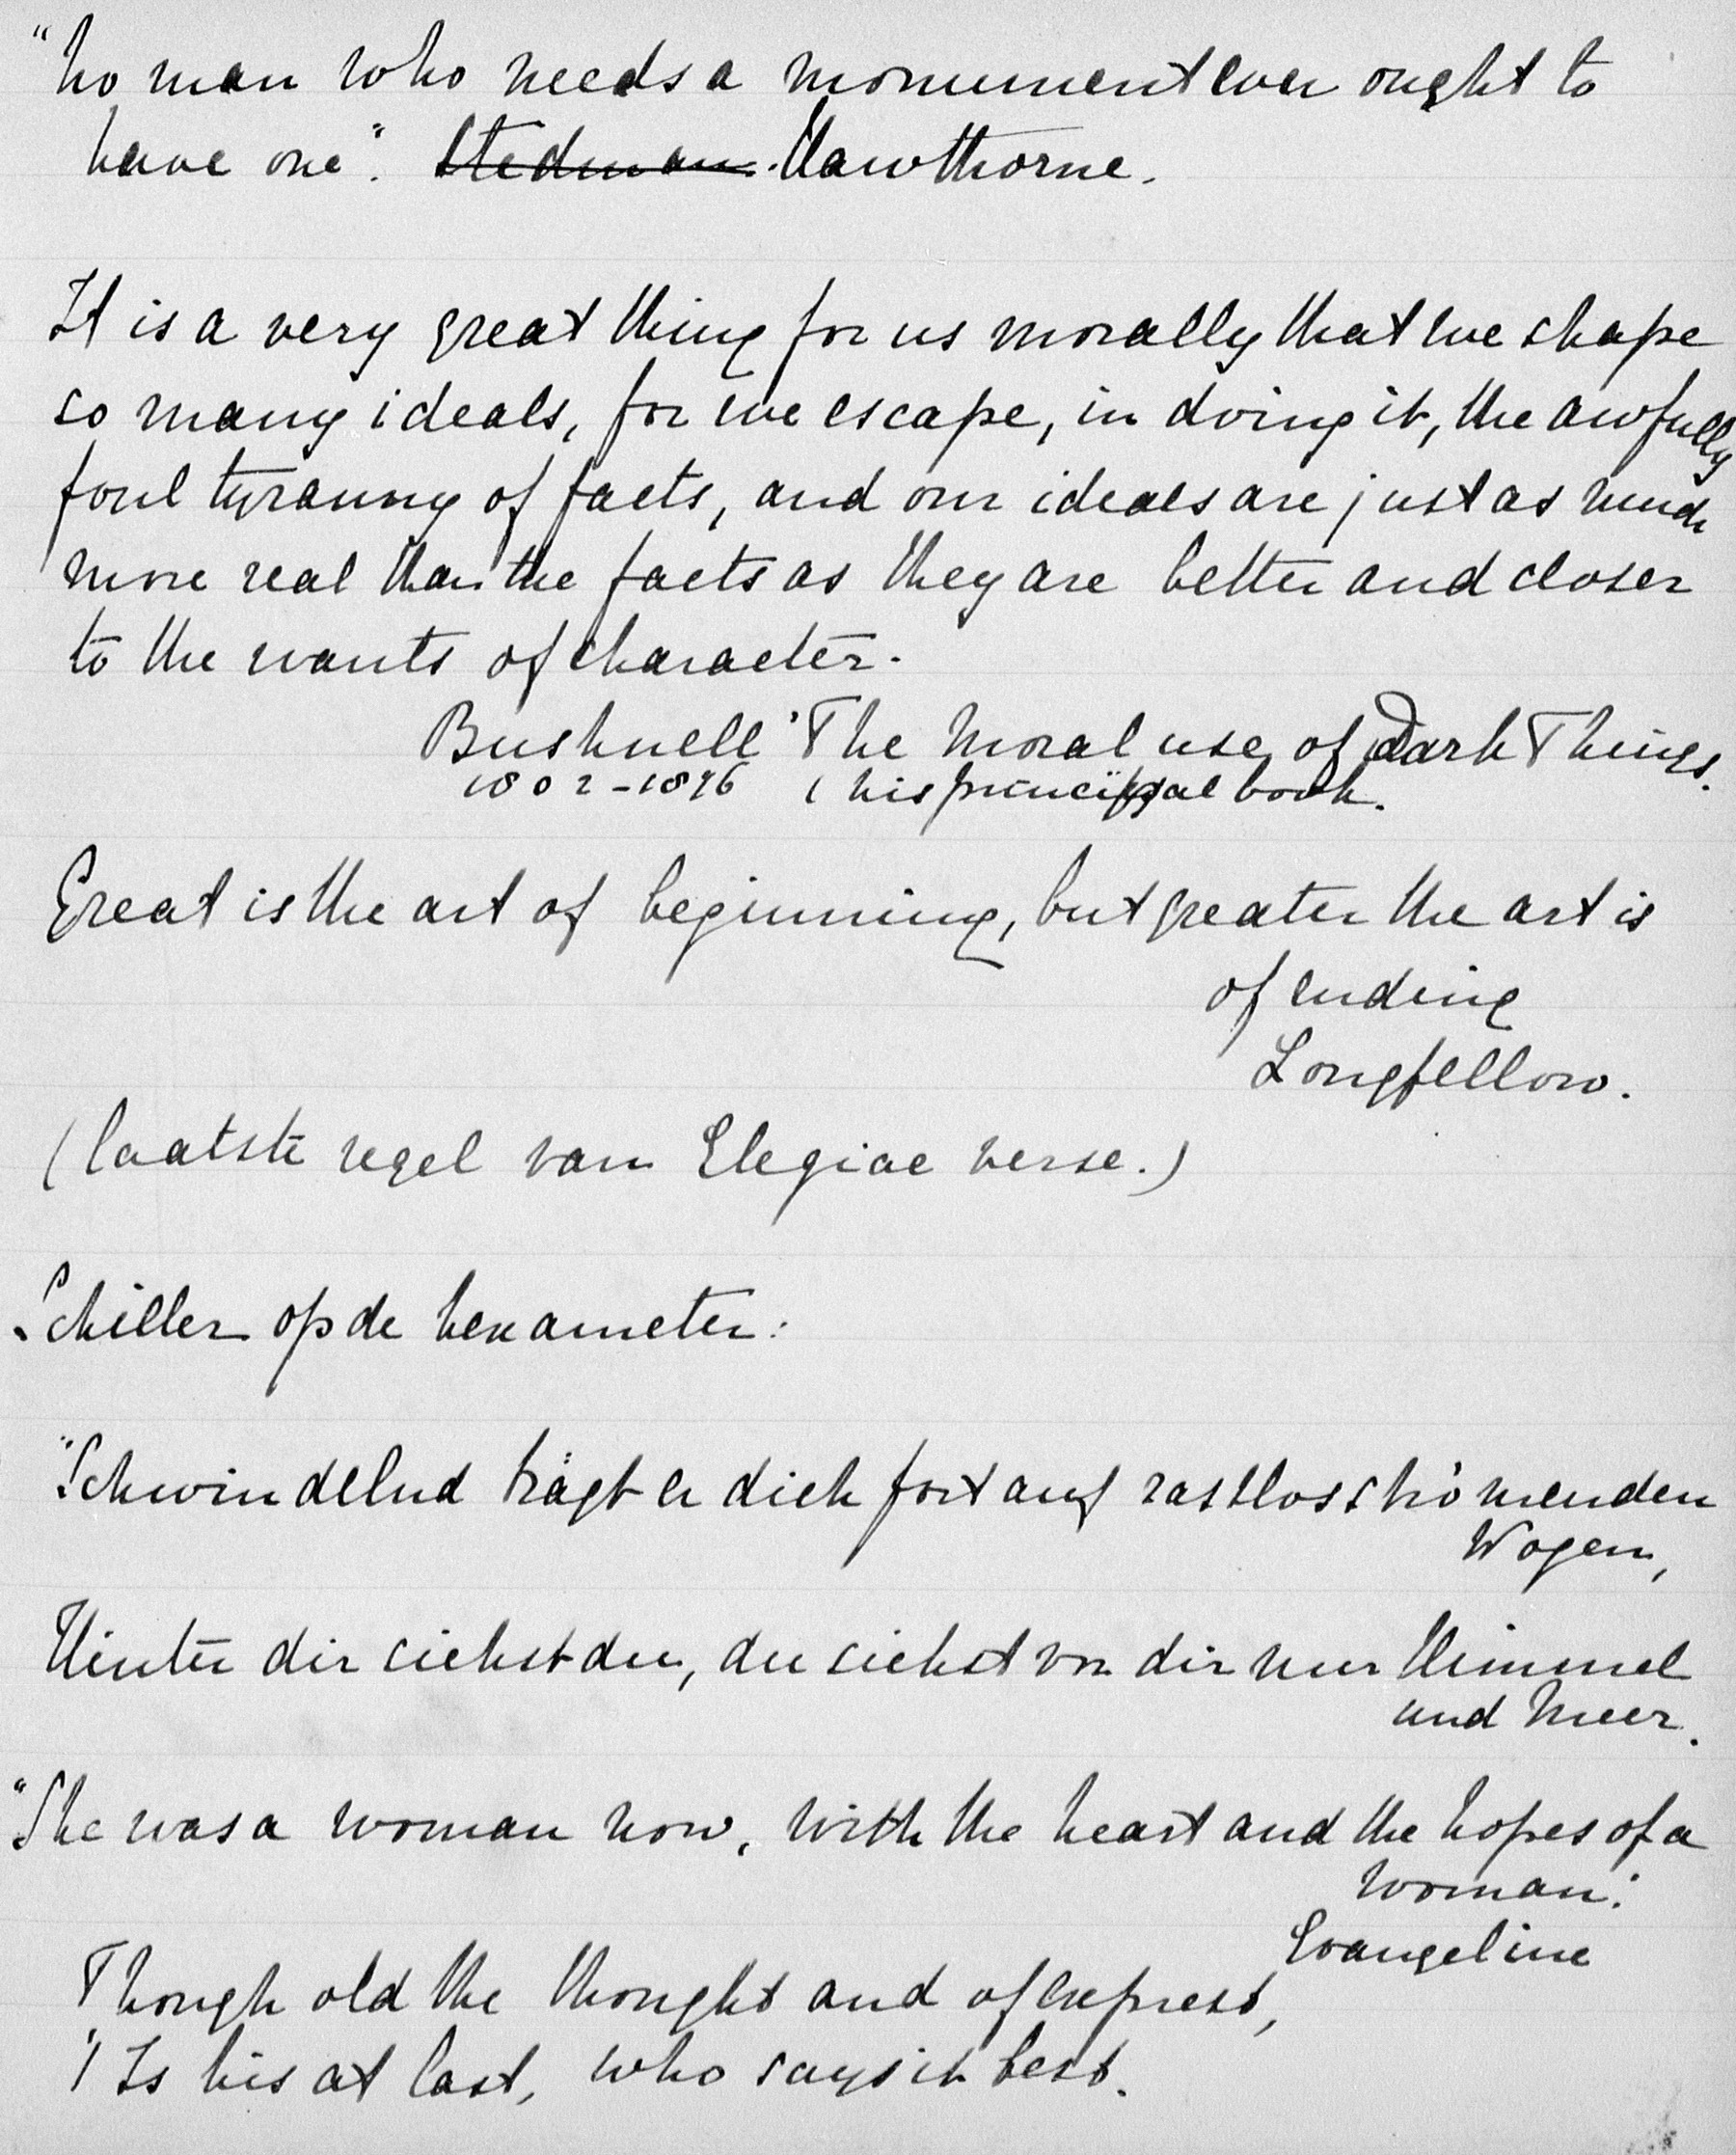 "No man who needs a monument ever ought to
have one". Stedman. Hawthorne.
It is a very great thing for us morally that we shape
so many ideals, for we escape, in doing it, the awfully
foul tyranny of facts, and our ideals are just as much
more real than the facts as they are better and closer
to the wants of character.
Bushnell 'The Moral use of Dark Things.
1802-1876 (his principal book.
Great is the art of beginning, but greater the art is
of ending
Longfellow.
(laatste regel van Elegiac verse.)
Schiller op de hexameter:
"Schwindelnd trägt er dich fort auf rastlos strömenden
Wogen,
Hinter dir siehst du, du siehst vor dir nur Himmel
und Meer.
"She was a woman now, with the heart and the hopes of a
woman."
Evangeline
Though old the thought and of exprest,
'T Is his at last, who says it best.